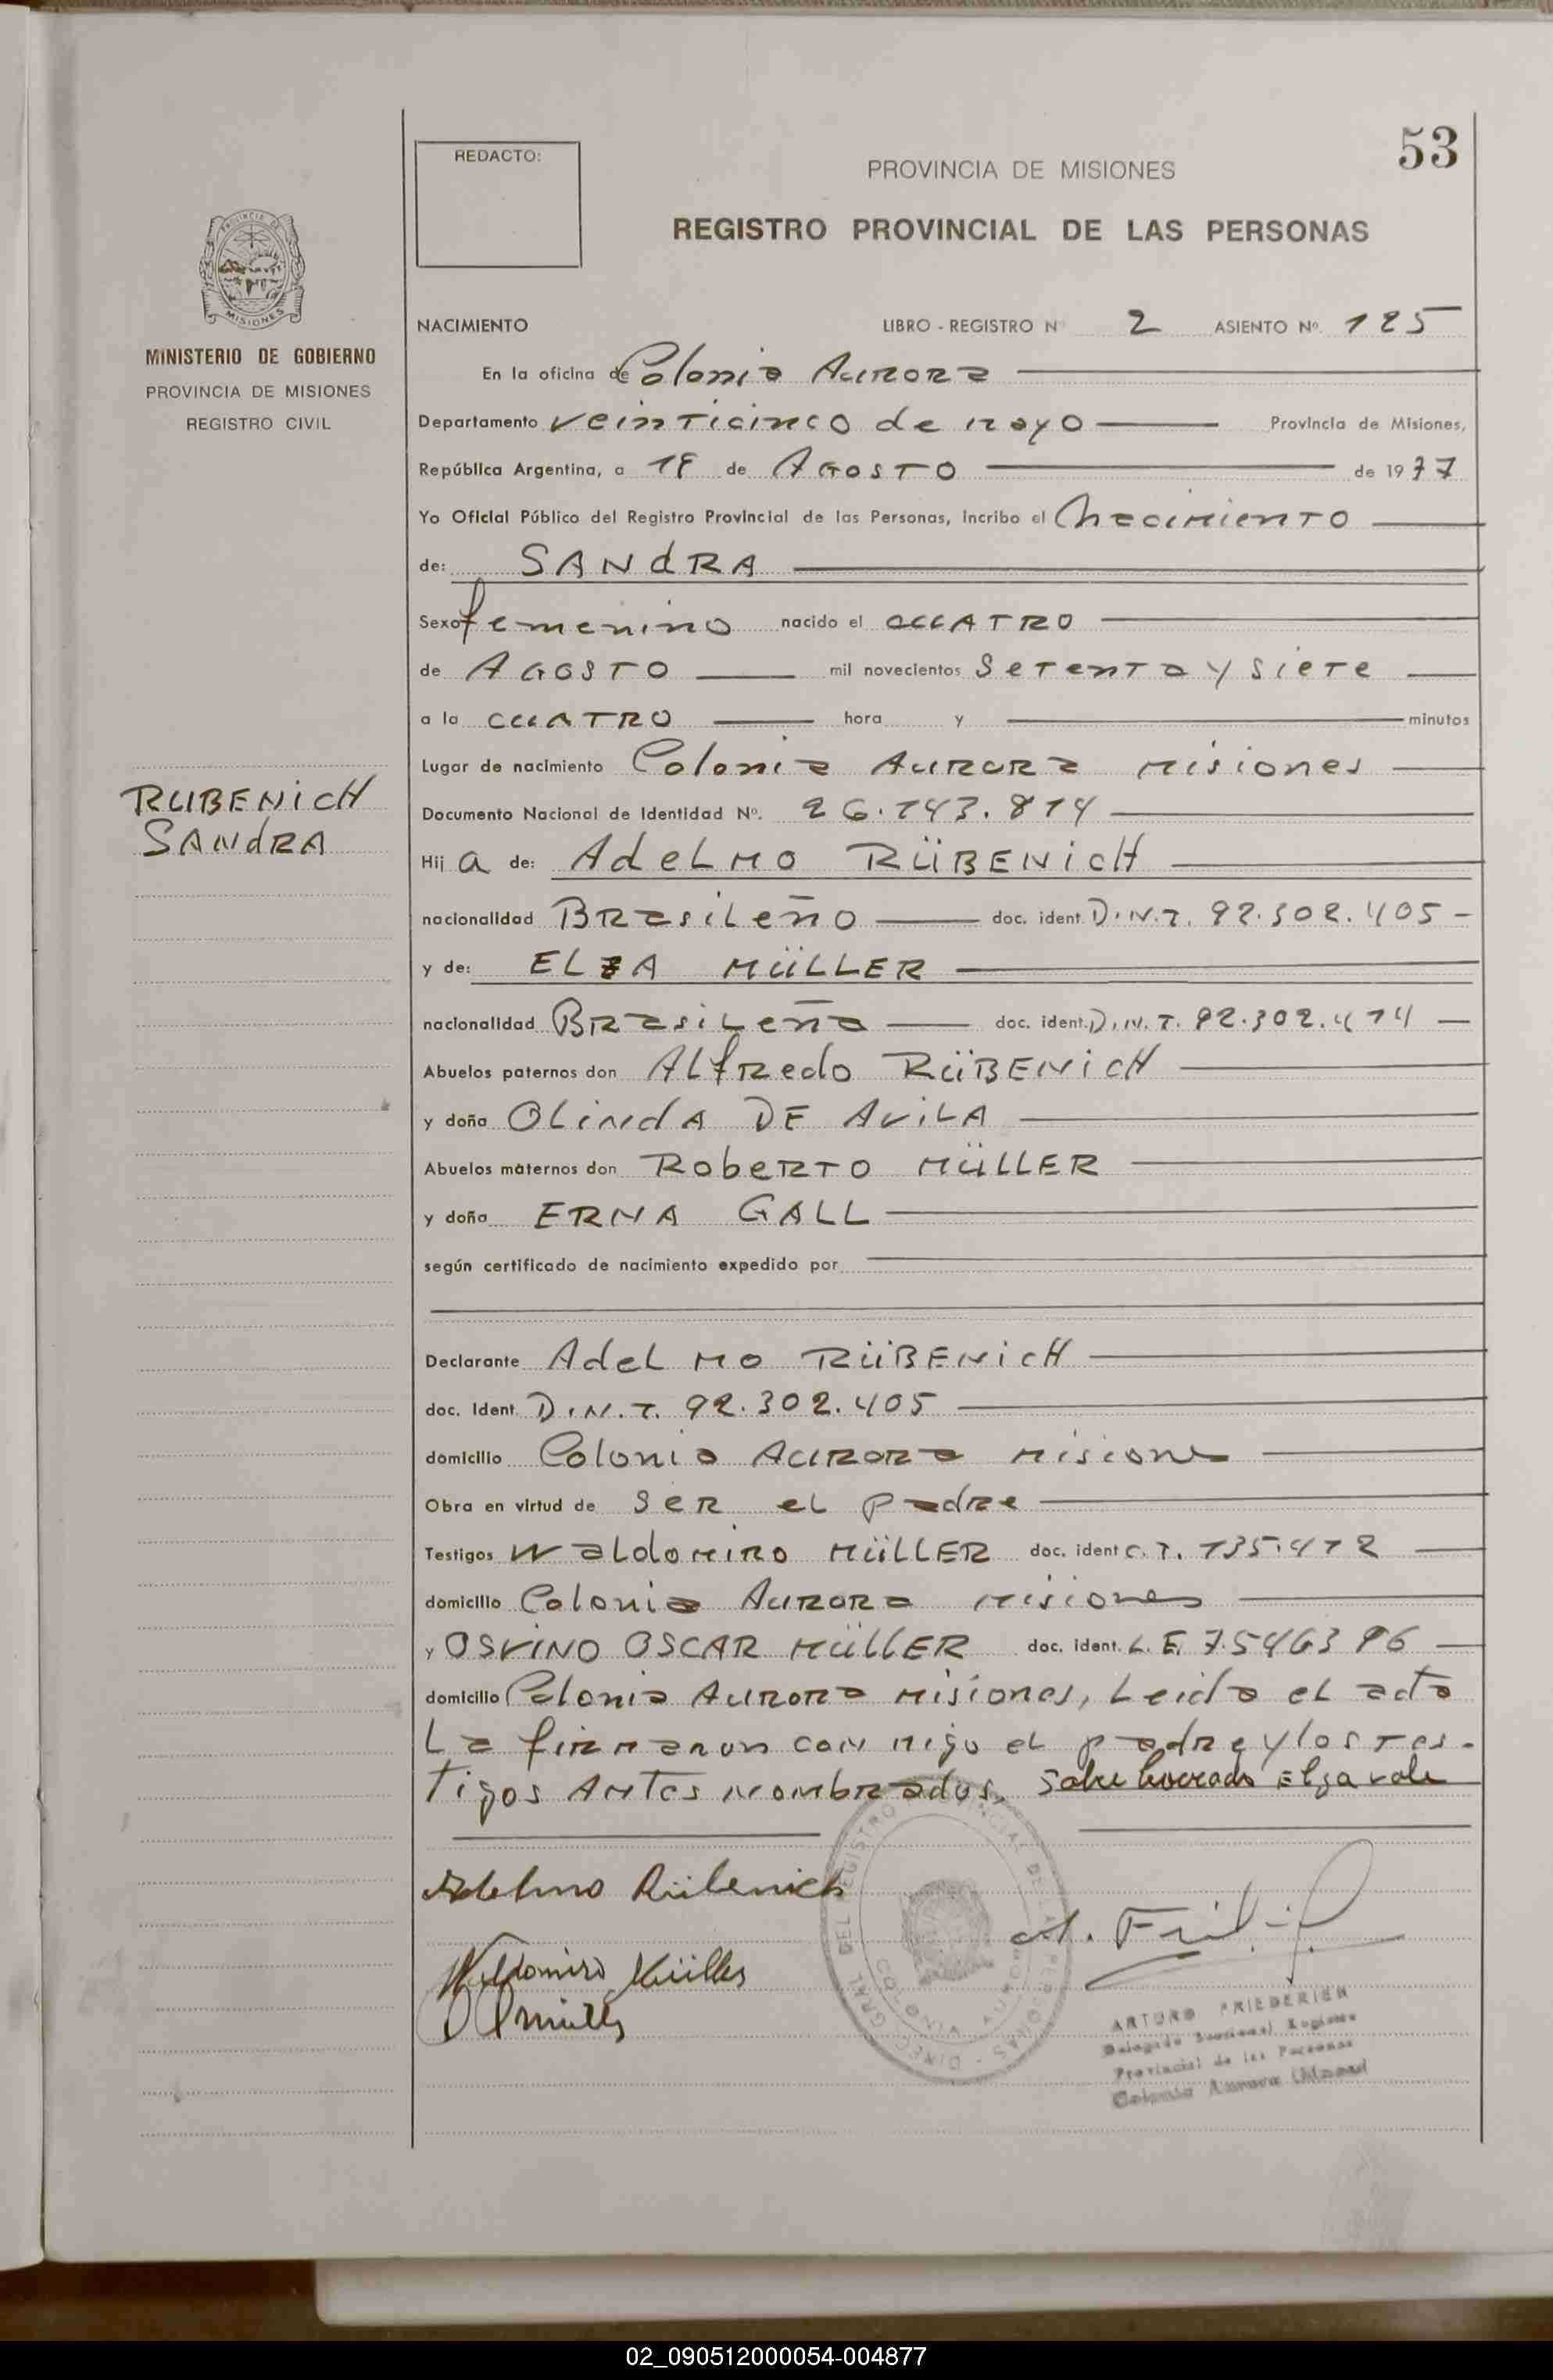 53
REDACTO:
PROVINCIA DE MISIONES
REGISTRO PROVINCIAL DE LAS PERSONAS
MISIONES
MINISTERIO DE GOBIERNO
PROVINCIA DE MISIONES
REGISTRO CIVIL
NACIMIENTO LIBRO - REGISTRO Nº 2 ASIENTO Nº. 125
En la oficina de Colonia Aurora
Departamento Veinticinco de Mayo Provincia de Misiones,
República Argentina, a de Agosto de 1977
Yo Oficial Público del Registro Provincial de las Personas, incribo el Nacimiento
de: SANdRA
Sexo femenino nacido el CUATRO
de AGOSTO mil novecientos Setenta y Siete
a la CUATRO hora y minutos
Lugar de nacimiento Colonia Aurora Misiones
RUBENicH
SANdRA
Documento Nacional de Identidad Nº. 26.143.814
Hij a de: AdeLMO RÜBENicH
nacionalidad BRasiLeño doc. ident. D.N.I. 92.302.405
y de: ELZA MÜLLER
nacionalidad BRasiLeña doc. ident. D.N.I. 92.302.414
Abuelos paternos don ALfRedo RÜBENicH
y doña OLindA DE AviLA
Abuelos maternos don RobeRTO MÜLLER
y doña ERNA GALL
según certificado de nacimiento expedido por
Declarante AdeLMO RÜBENicH
doc. Ident. D.N.I. 92.302.405
domicilio Colonia Aurora Misiones
Obra en virtud de SeR eL Padre
Testigos WaLdomiro MÜLLER doc. ident C.I. 135.412
domicilio Colonia Aurora Misiones
y OSVINO OSCAR MÜLLER doc. ident. L.E. 7.546396
domicilio Colonia Aurora Misiones, Leida eL acta
La firmaron conmigo eL padre y los tes-
tigos Antes nombrados. Sobre borrado Elza vale
Adelmo Rübenich
Waldomiro Müller
A. Fried
ARTURO FRIEDERICH
Delegado Seccional Registro
Provincial de las Personas
Colonia Aurora (Mnes)
02_090512000054-004877